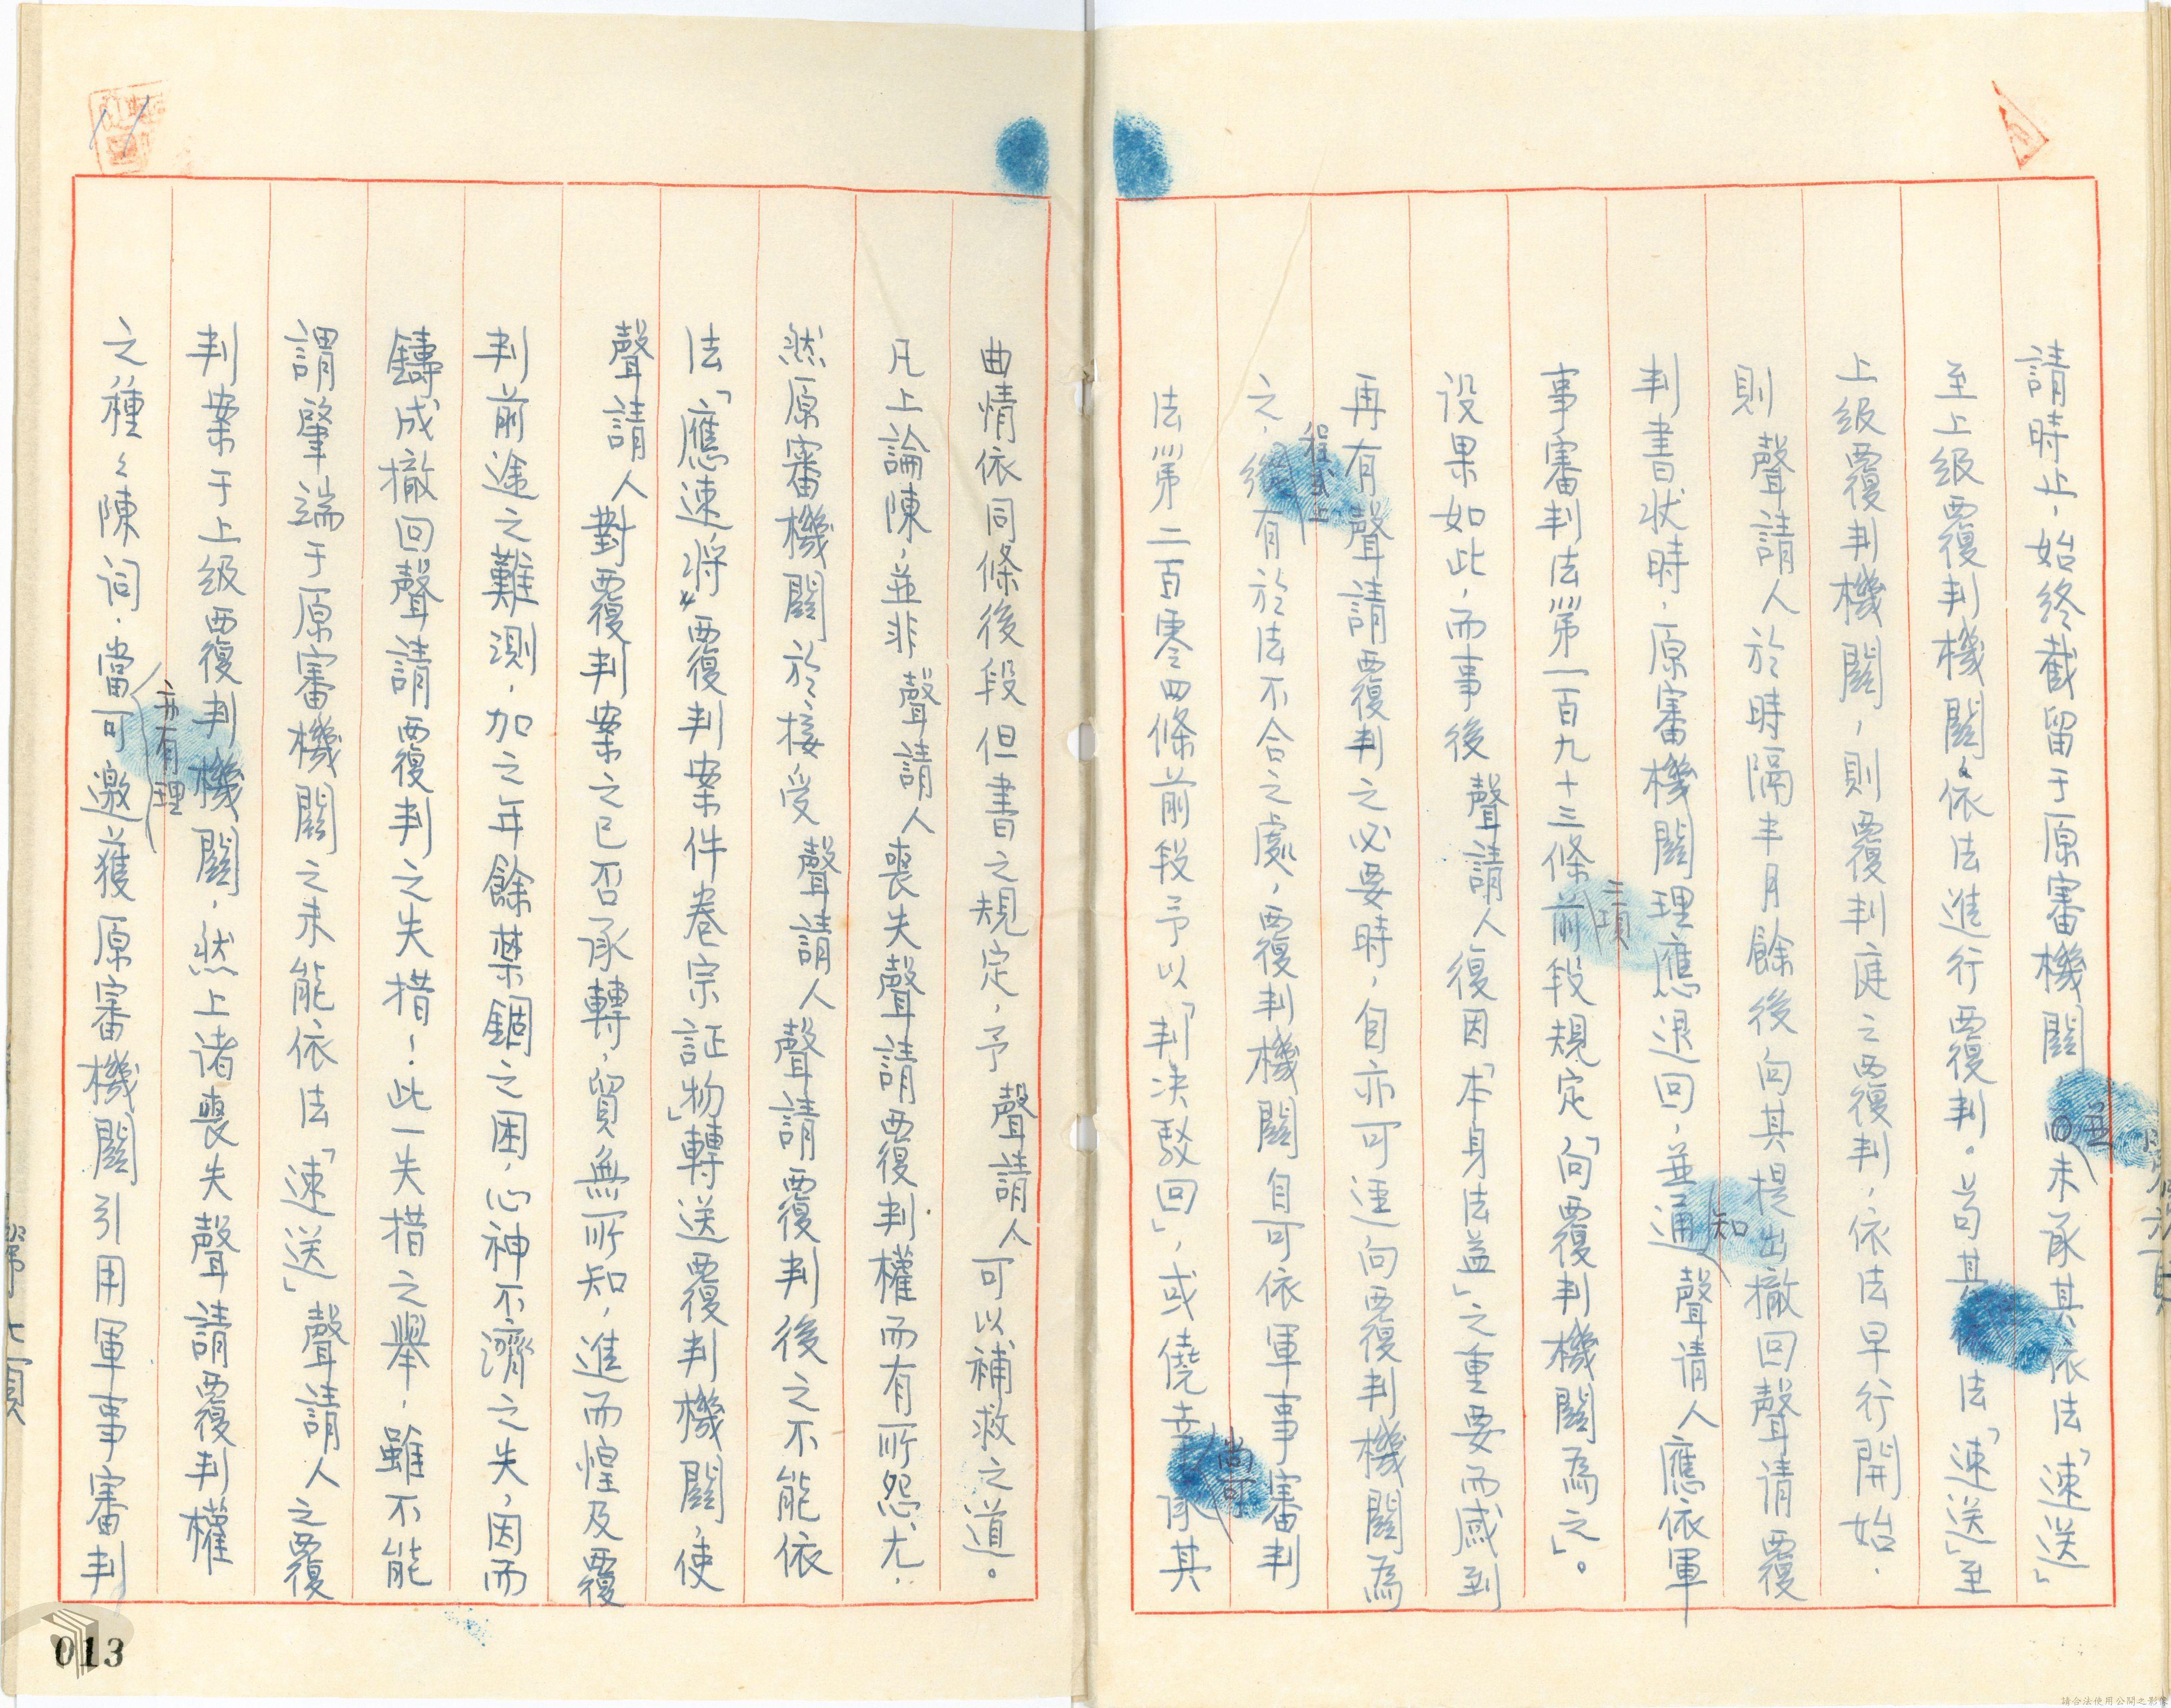 請時止，始終截留于原審機關，並未承其依法「速送」
至上級覆判機關，依法進行覆判。苟其依法「速送」至
上級覆判機關，則覆判庭之覆判，依法早行開始．
則　聲請人於時隔半月餘後向其提出撤回聲请覆
判書狀時，原審機關理應退回，並通知聲请人應依軍
事審判法第一百九十三條前二項段規定，「向覆判機關為之」。
设果如此，而事後聲請人復因「本身法益」之重要而感到
再有聲請覆判之必要時，自亦可逕向覆判機關為
之，程式上有於法不合之處，覆判機關自可依軍事審判
法第二百零四條前段予以「判决駁回」，或僥幸尚可承其
曲情依同條後段但書之規定，予聲請人可以補救之道。
凡上論陳，並非聲請人喪失聲請覆判權而有所怨尤：
然原審機關於接受聲請人聲請覆判後之不能依
法「應速將覆判案件卷宗証物」轉送覆判機關，使
聲請人對覆判案之已否承轉，貿無所知，進而惶及覆
判前途之難測，加之年餘禁錮之困，心神不濟之失，因而
鑄成撤回聲請覆判之失措！此一失措之舉，雖不能
謂肇端于原審機關之未能依法「速送」聲請人之覆
判案于上級覆判機關，然上诸喪失聲請覆判權
之種々陳词，當可亦有理邀獲原審機關引用軍事審判
013
請合法使用公開之影像